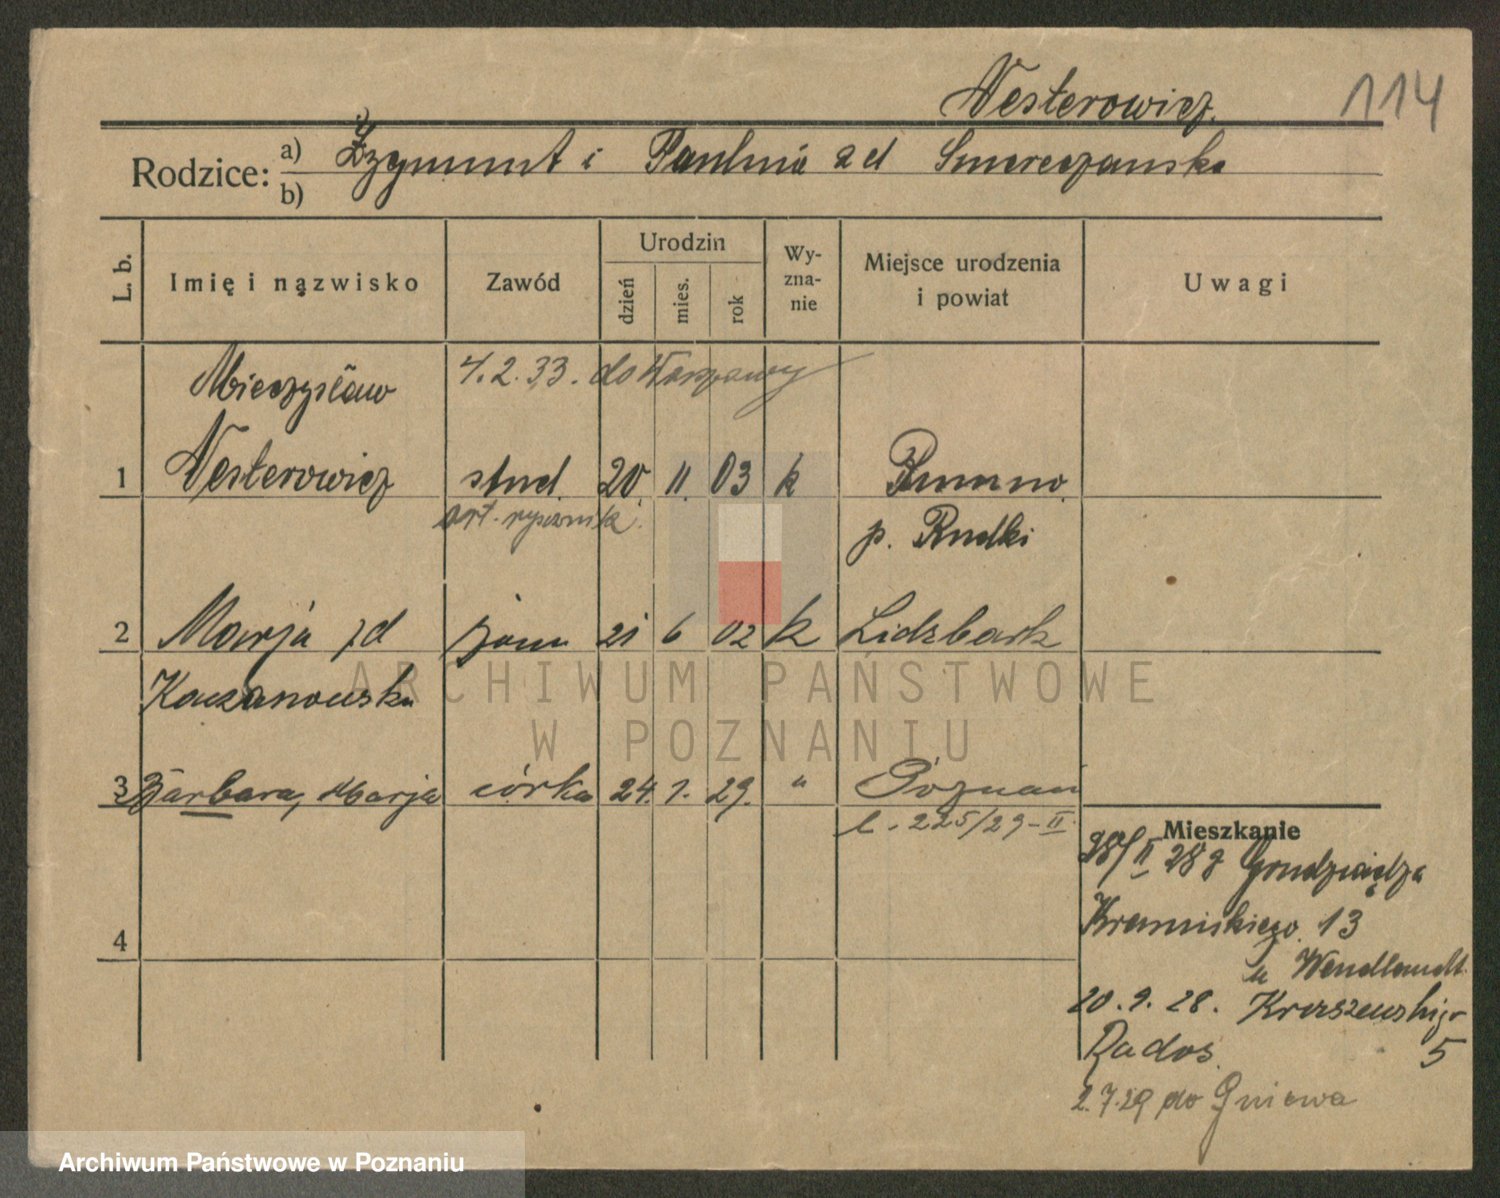 Nesterowicz.
114
Rodzice: a) Zygmunt i Paulina zd Smereczańska
b)
L. b.
Imię i nazwisko
Zawód
Urodzin
dzień
mies.
rok
Wy-
zna-
nie
Miejsce urodzenia
i powiat
Uwagi
Mieczysław
4.2.33. do Warszawy
1 Nesterowicz stud. 20. 11. 03 k
art. rysownik.
p. Rudki
2 Marja zd żona 21 6 02 k Lidzbark
Kaczanowska
3 Barbara, Marja córka 24. 1. 29. " Poznań
L. 225/29-II
4
Mieszkanie
28/II 28 z Grudziądza
13
u Wendlandt
20.9.28. Kraszewskiego
Rados. 5
2.7.29 do Gniewa
ARCHIWUM PAŃSTWOWE
W POZNANIU
Archiwum Państwowe w Poznaniu